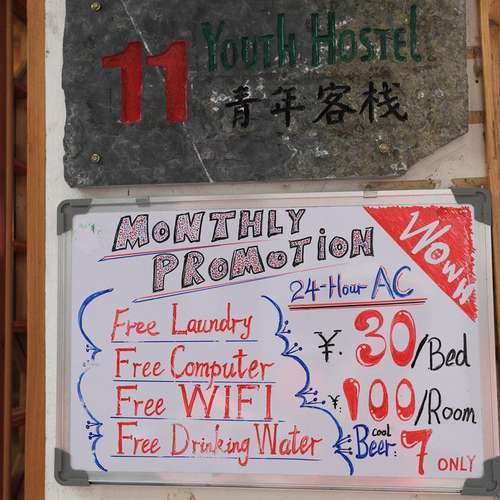 11 Youth Hostel
青年客栈
MONTHLY
PROMOTION
WOWW
24-Hour AC
Free Laundry
Free Computer
Free WIFI
Free Drinking Water
¥. 30/Bed
¥. 100/Room
cool
Beer: 7 ONLY